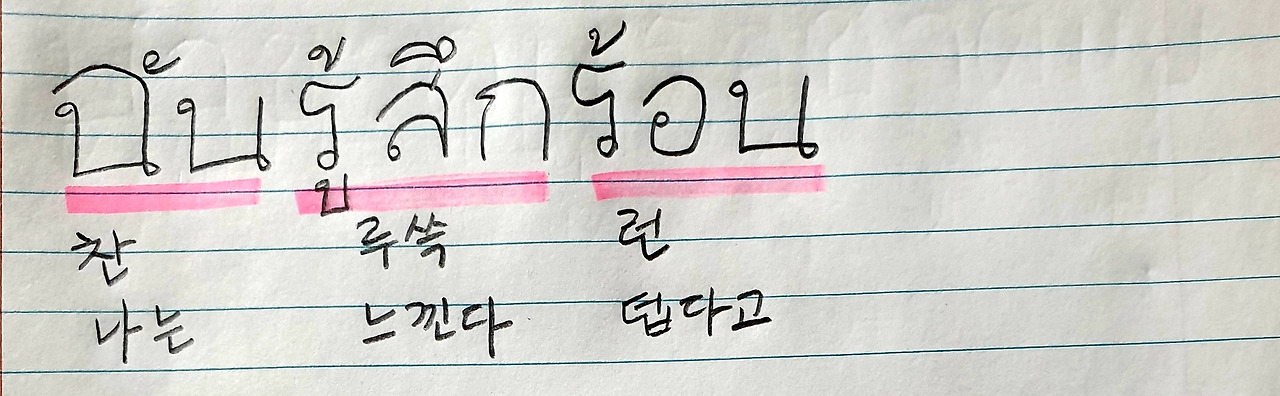 ฉันรู้สึกร้อน
찬 루쓱 런
나는 느낀다 덥다고